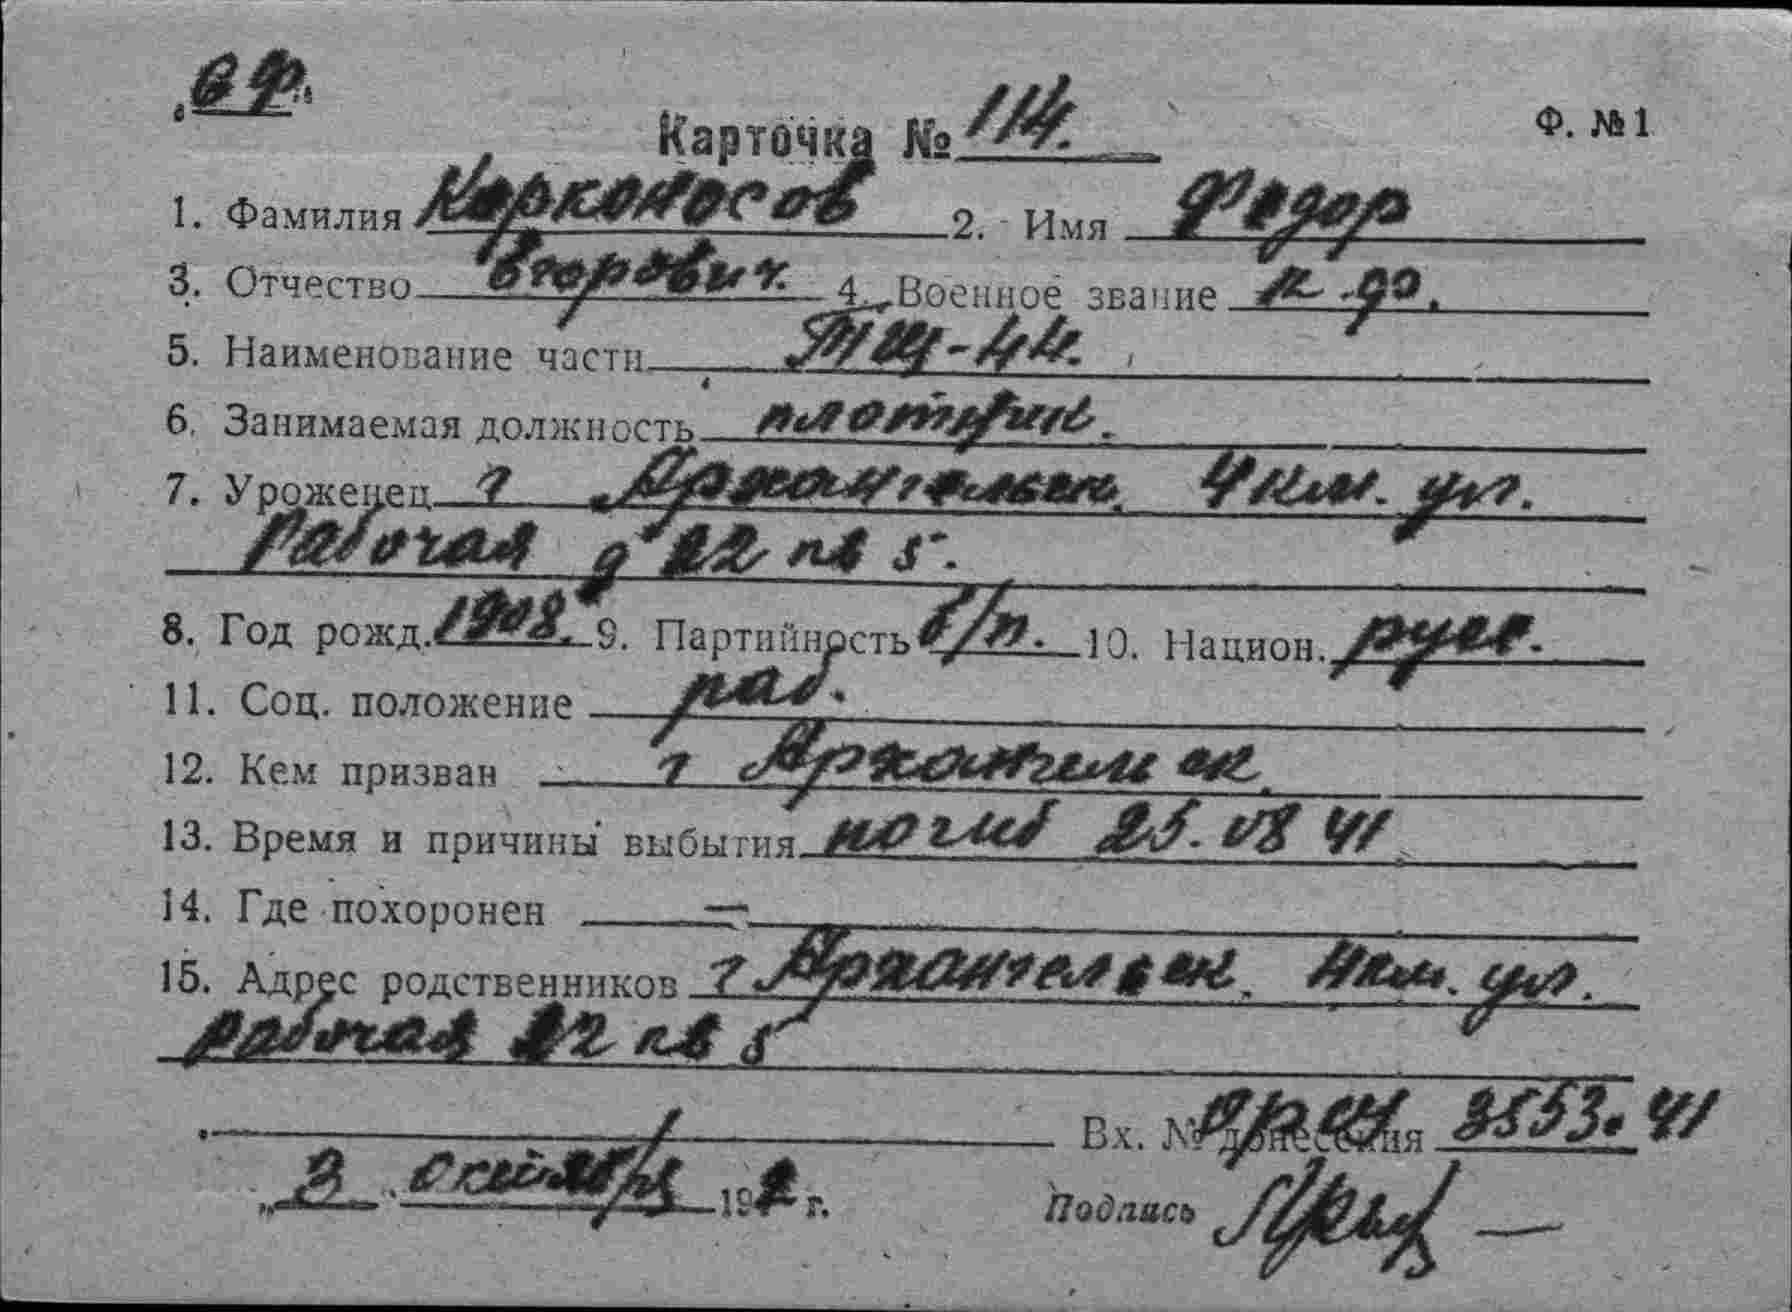 „СФ“
Карточка № 114. Ф. №1
1. Фамилия Карконосов 2. Имя Федор
3. Отчество Егорович. 4. Военное звание к-до.
5. Наименование части ТЩ-44.
6. Занимаемая должность плотник.
7. Уроженец г Архангельск. 4 км. ул.
Рабочая д 22 кв 5.
8. Год рожд. 1908. 9. Партийность б/п. 10. Национ. русс.
11. Соц. положение раб.
12. Кем призван г Архангельск.
13. Время и причины выбытия погиб 25.08 41
14. Где похоронен —
15. Адрес родственников г Архангельск. 4 км. ул.
Рабочая 22 кв 5
Вх. № донесения 3553. 41
„3 октября 19 г. Подпись